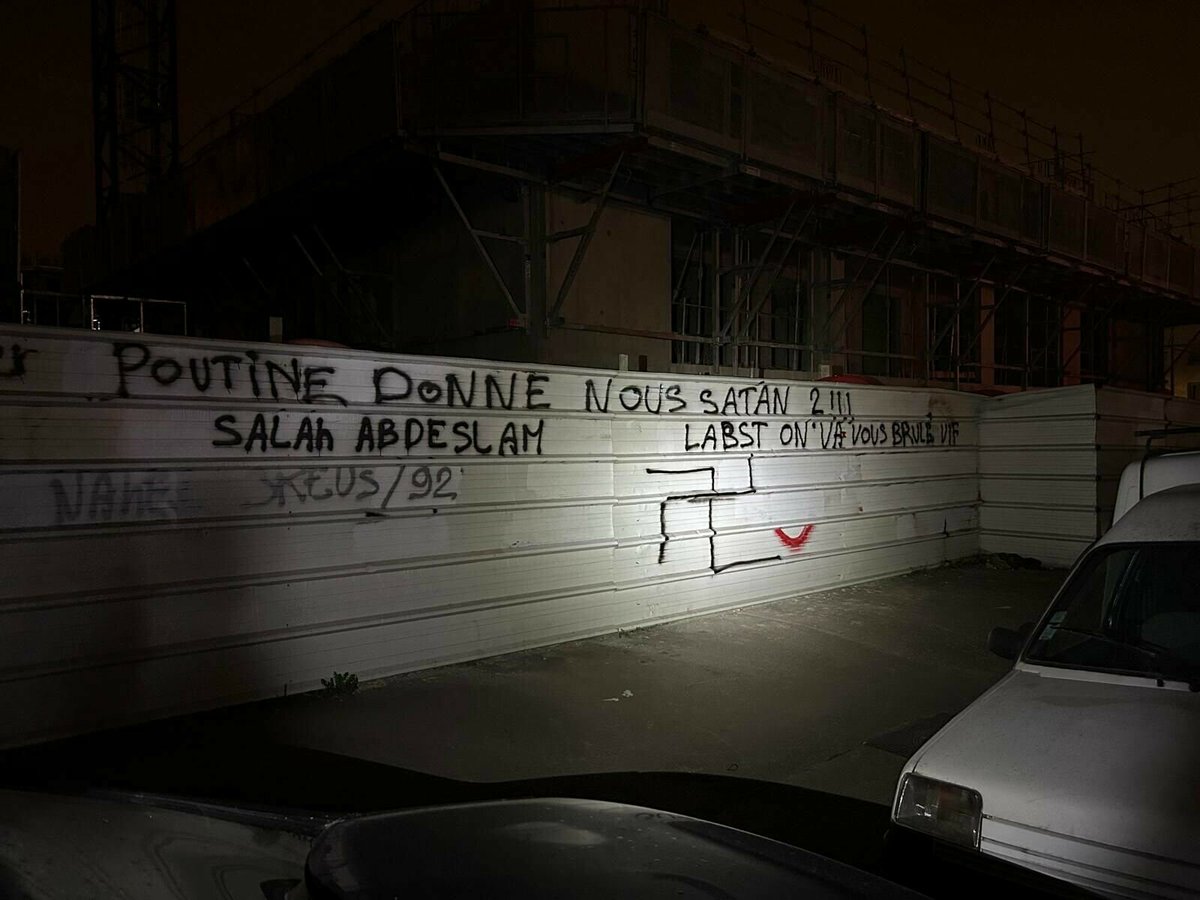 POUTINE DONNE NOUS SATAN 2!!!
SALAh ABDESLAM
LABST ON VA VOUS BRULÉ VIF
KEUS/92